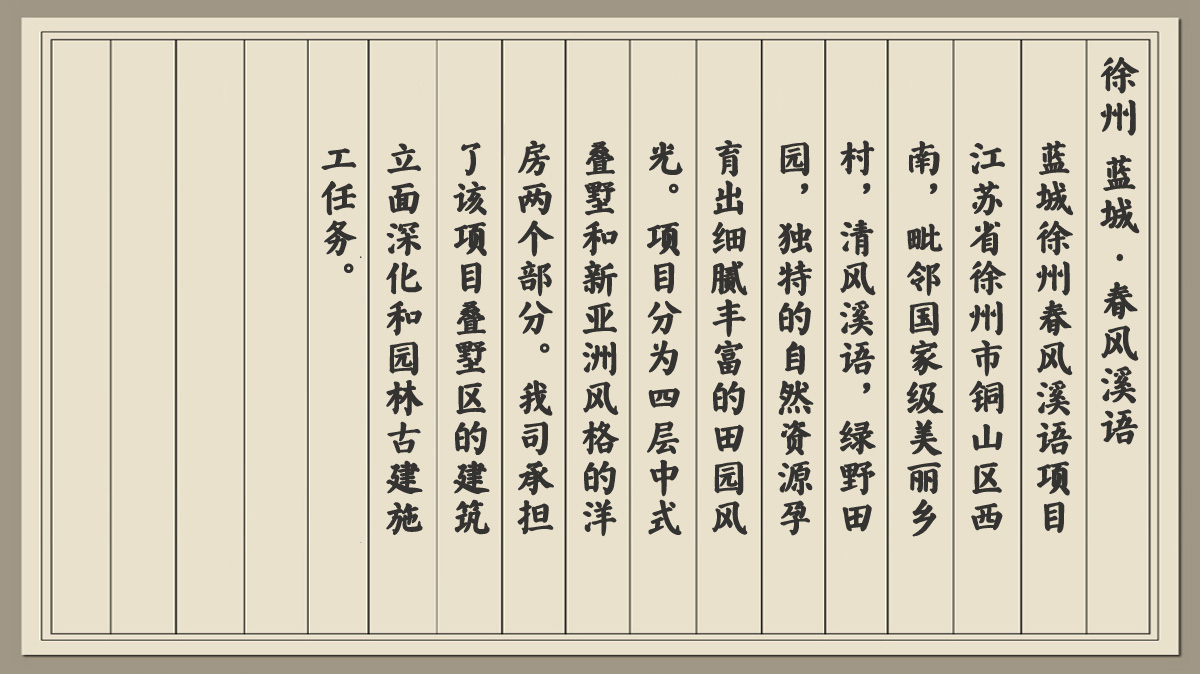 徐州 蓝城·春风溪语
蓝城徐州春风溪语项目
江苏省徐州市铜山区西
南，毗邻国家级美丽乡
村，清风溪语，绿野田
园，独特的自然资源孕
育出细腻丰富的田园风
光。项目分为四层中式
叠墅和新亚洲风格的洋
房两个部分。我司承担
了该项目叠墅区的建筑
立面深化和园林古建施
工任务。